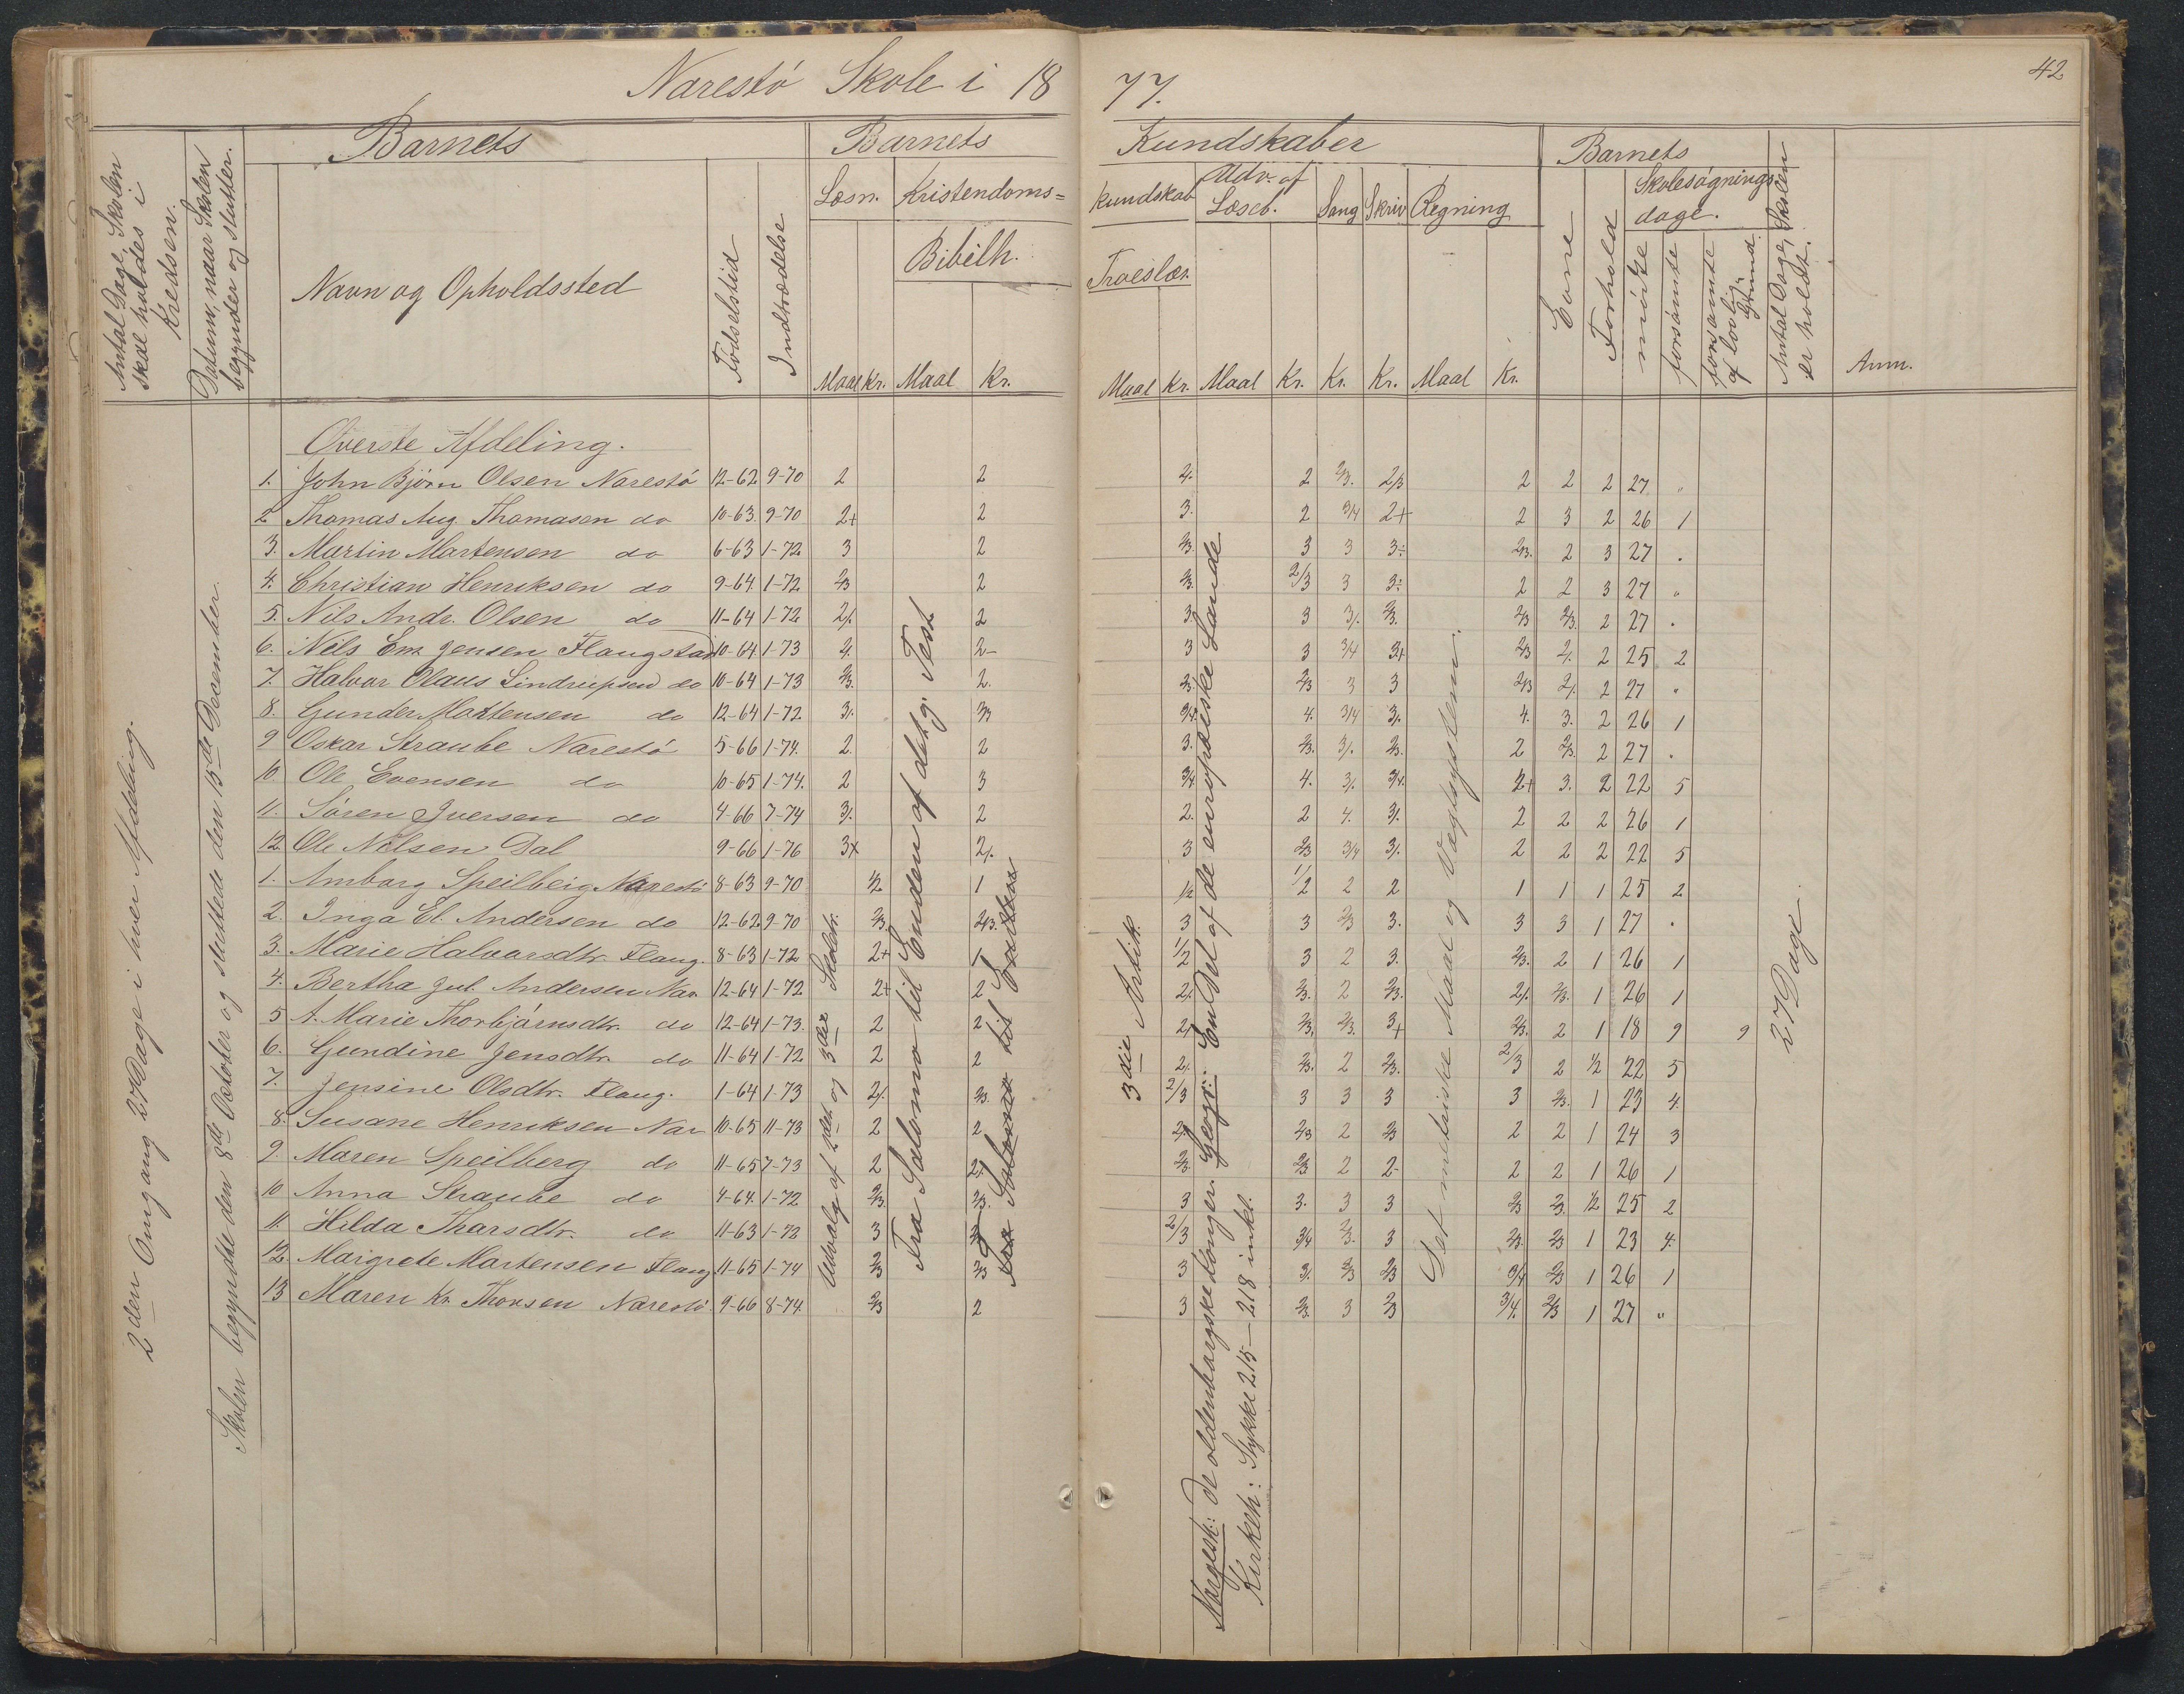 Narestö Skole i 18 77.
42
Antal Dage, Skolen skal holdes i Kredsen.
Datum, naar Skolen begynder og slutter.
Barnets
Navn og Opholdssted
Födselstid
Indtrædelse
Barnets Kundskaber
Læsn.
Maal Kr.
Kristendoms= kundskab
Bibelh.
Maal Kr.
Troeslær.
Maal Kr.
Udv. af Læseb.
Maal Kr.
Sang Kr.
Skriv Kr.
Regning
Maal Kr.
Barnets
Evne
Forhold
Skolesögnings dage.
mödte
forsömte
forsömte af lovlig Grund.
Antal Dage, Skolen er holdt.
Anm.
2den Omgang 27 Dage i hver Afdeling.
Skolen begyndte den 8de Oktober og sluttede den 15de December.
Överste Afdeling.
1. John Björn Olsen Narestö 12-62 9-70 2 2 2. 2 2/3. 2/3 2 2 2 27 "
2. Thomas Aug. Thomasen do 10-63. 9-70 2+ 2 3. 2 3/4 2+ 2 3 2 26 1
3. Martin Martensen do 6-63 1-72 3 2 2/3. 3 3 3÷ 2/3. 2 3 27 "
4. Christian Henriksen do 9-64. 1-72 2/3 2 2/3. 2/3 3 3÷ 2 2 3 27 "
5. Nils Andr. Olsen do 11-64 1-72 2/. 2 3. 3 3/. 2/3. 2/3 2/3. 2 27 "
6. Nils Em. Jensen Flaugstad 10-64 1-73 2. 2- 3 3 3/4 3+ 2/3 2/. 2 25 2
7. Halvor Olaus Lindrupsen do 10-64 1-73 2/3. 2. 2/3. 2/3 3 3 2/3 2/. 2 27 "
8. Gunder Martensen do 12-64 1-72 3/. 2/3 3/4. 4. 3/4 3/. 4. 3. 2 26 1
9 Oskar Straube Narestö 5-66 1-74. 2. 2 3. 2/3. 3/. 2/3. 2 2/3. 2 27 "
10. Ole Evensen do 10-65 1-74. 2 3 3/4 4. 3/. 3/4. 2+ 3. 2 22 5
11. Sören Iversen do 4-66 7-74 3/. 2 2. 2 4. 3/. 2 2 2 26 1
12 Ole Nilsen Dal 9-66 1-76 3+ 2/. 3 2/3 3/4 3/. 2 2 2 22 5
1. Amborg Speilberg Narestö 8-63 9-70 1/2 1 1/2 1/2 2 2 1 1 1 25 2
2. Inga El. Andersen do 12-62 9-70 2/3. 2/3. 3 3 2/3 3. 3 3 1 27 "
3. Marie Halvorsdtr. Flaug. 8-63 1-72 2+ 1 1/2 3 2 3. 2/3. 2 1 26 1
4. Bertha Jul. Andersen Nar. 12-64 1-72 2+ 2 2/. 2/3. 2 2/3. 2/. 2/3. 1 26 1
5 A. Marie Thorbjörnsdtr. do 12-64 1-73. 2 2 2/. 2/3. 2/3. 3+ 2/3. 2 1 18 9 9
6. Gundine Jensdtr. do 11-64 1-72 2 2 2/. 2/3. 2 2/3. 2/3 2 1/2 22 5
7. Jensine Olsdtr. Flaug. 1-64 1-73 2/. 2/3. 2/3 3 3 3 3 2/3. 1 23 4.
8. Susane Henriksen Nar 10-65 11-73 2 2 2/. 2/3 2 2/3 2 2 1 24 3
9. Maren Speilberg do 11-65 7-73 2 2/. 2/3. 2/3 2 2- 2 2 1 26 1
10 Anna Straube do 4-64. 1-72 2/3. 2/3. 3 3. 3 3 2/3 2/3. 1/2 25 2
11. Hilda Tharsdtr. do 11-63 1-72 3 2/3 3/4 2/3. 3 2/3. 2/3 1 23 4.
12. Margrete Martensen Flaug 11-65 1-74 2/3 2/3 3 3/. 2/3 2/3 3/4 2/3 1 26 1
13 Maren Kr. Thorsen Narestö. 9-66 8-74 2/3 2 3 2/3. 3 2/3 3/4. 2/3 1 27 "
Udvalg af 2det og 3die Skoletr.
Fra Salomo til Enden af det gl. Test.
fra Salomo til
3die Artik.
Norgesh: De oldenborgske Konger. Geogr: En Del af de europæiske Lande
Kirkeh: Stykke 215 — 218 inkl.
Det metriske Maal og Vægtsystem.
27 Dage